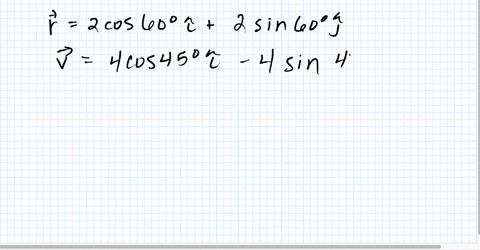 r⃗ = 2cos60° î + 2sin60° ĵ
v⃗ = 4cos45° î - 4 sin 4